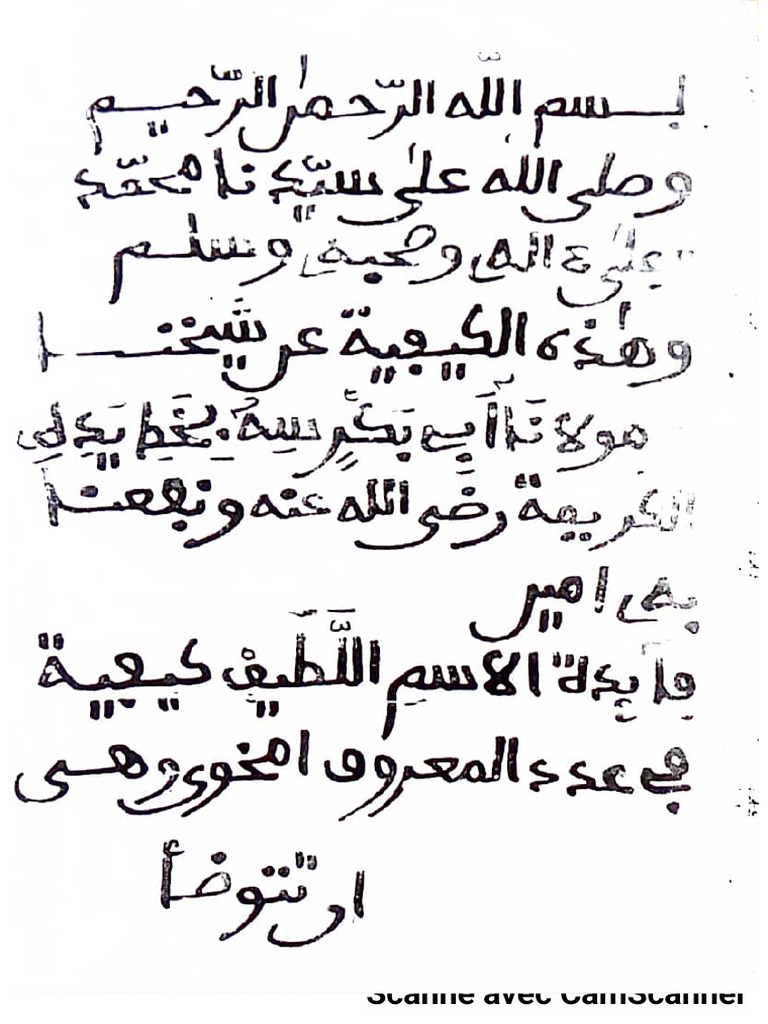 بسم الله الرّحمٰن الرّحيم
وصلى الله على سيّدنا محمّد
وعلىٰ ءاله وصحبه وسلم
وهٰذه الكيفية عن شيخنا
مولانا أبي بكر سه بخط يده
الكريمة رضى الله عنه ونفعنا
به ءامين
فايدة الاسم اللّطيف كيفية
في عدد المعروف وهى
ان تتوضأ
Scanné avec CamScanner